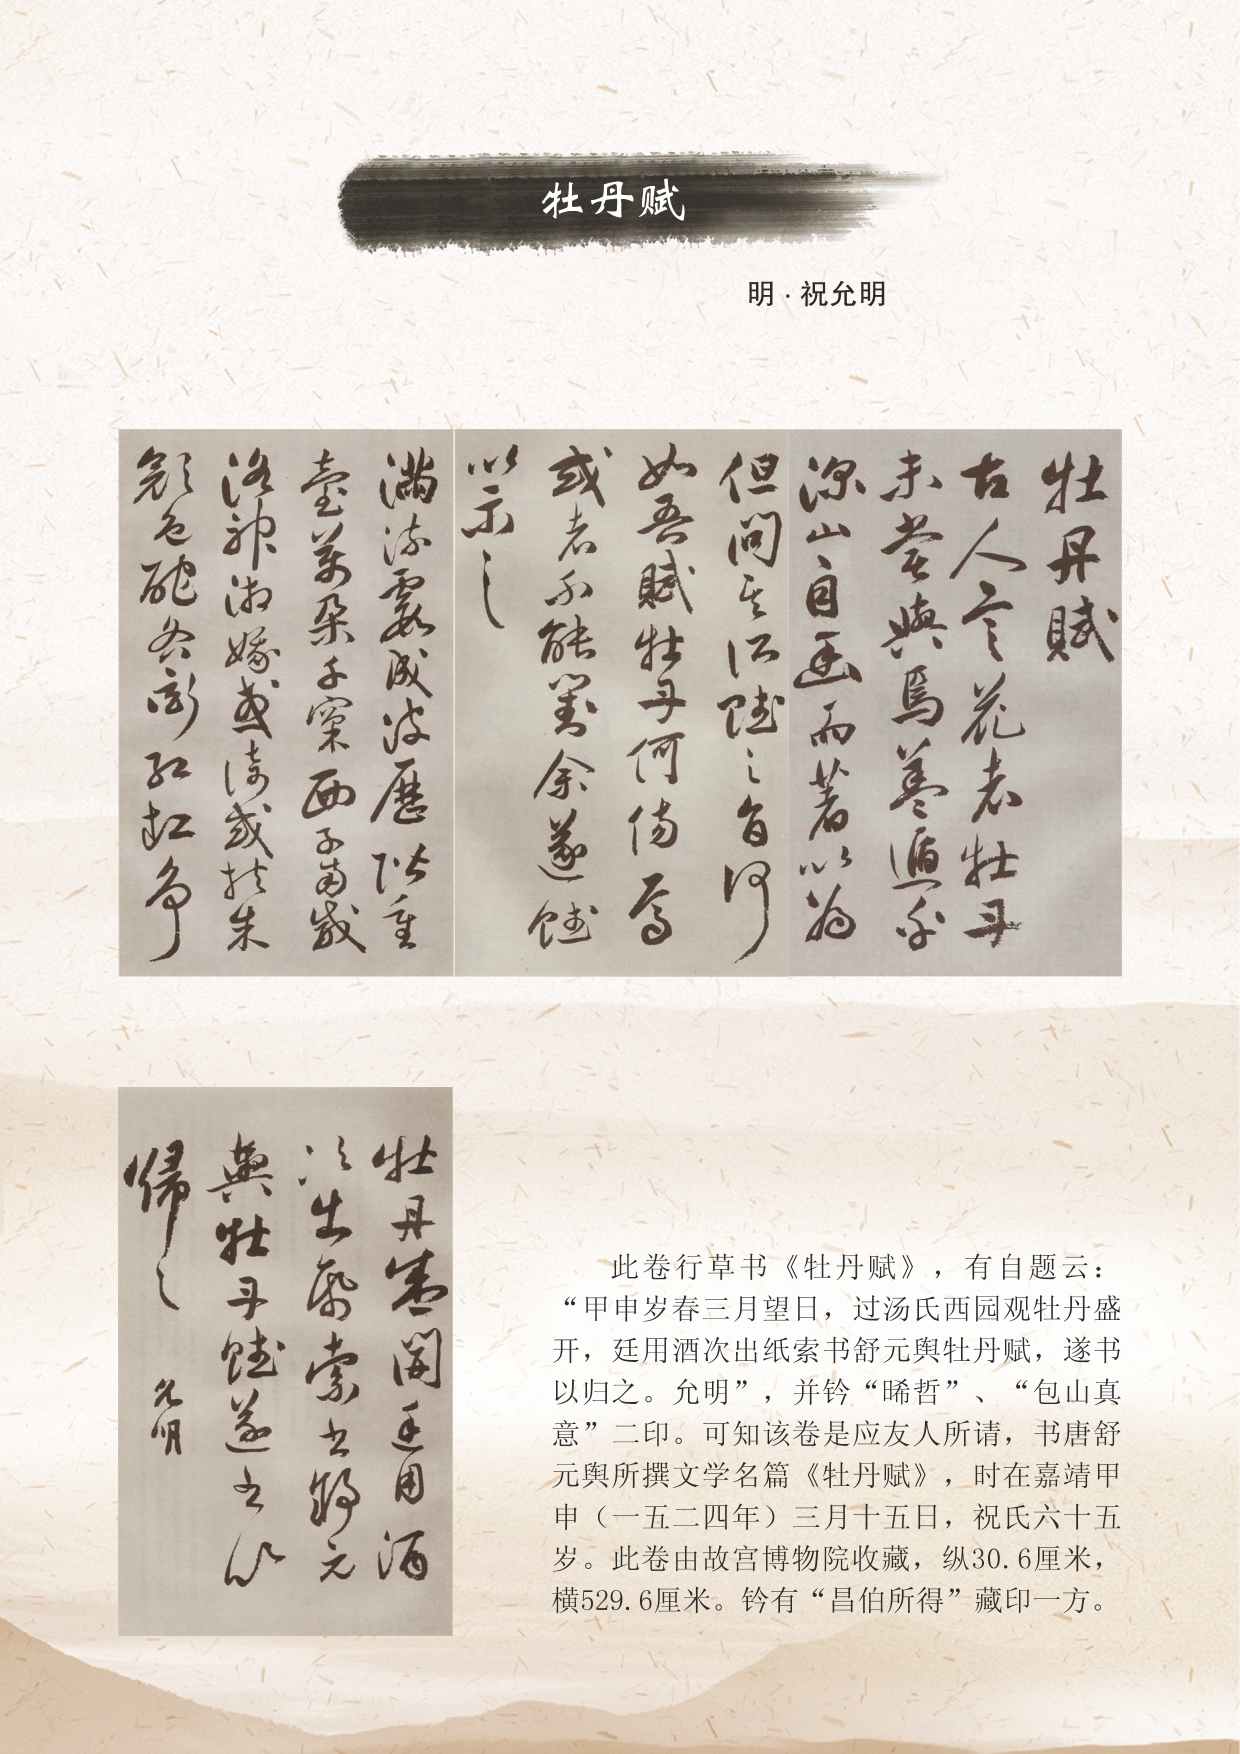 牡丹赋
明·祝允明
牡丹賦
古人言花者牡丹
未嘗與焉蓋遁乎
深山自幽而著以為
但問其所賦之旨何
如吾賦牡丹何傷焉
或者不能對余遂賦
以示之
滿流霞成波歷階重
臺萬朵千窠西子南威
洛神湘娥或倚或扶朱
顏色酡各衒紅釭爭
牡丹盛開廷用酒
次出紙索書舒元
輿牡丹賦遂書以
歸之 允明
此卷行草书《牡丹赋》，有自题云：
“甲申岁春三月望日，过汤氏西园观牡丹盛
开，廷用酒次出纸索书舒元舆牡丹赋，遂书
以归之。允明”，并钤“晞哲”、“包山真
意”二印。可知该卷是应友人所请，书唐舒
元舆所撰文学名篇《牡丹赋》，时在嘉靖甲
申（一五二四年）三月十五日，祝氏六十五
岁。此卷由故宫博物院收藏，纵30.6厘米，
横529.6厘米。钤有“昌伯所得”藏印一方。